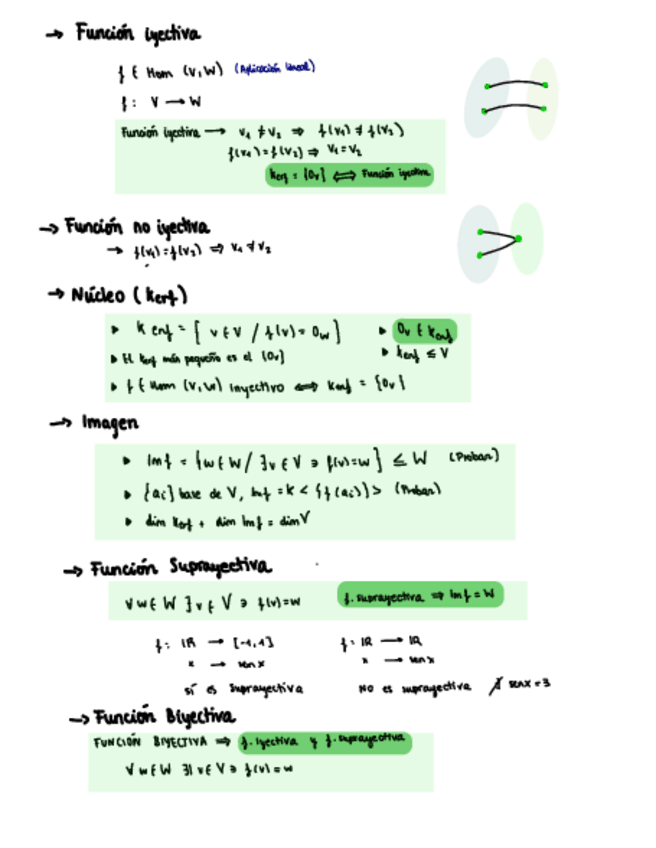 → Función iyectiva
f ∈ Hom (V,W) (Aplicación lineal)
f: V → W
Función iyectiva → v₁ ≠ v₂ ⇒ f(v₁) ≠ f(v₂)
f(v₁) = f(v₂) ⇒ v₁ = v₂
Kerf = {0v} ⟺ Función iyectiva
→ Función no iyectiva
→ f(v₁) = f(v₂) ⇒ v₁ ≠ v₂
→ Núcleo (Kerf)
▸ Kerf = [ v ∈ V / f(v) = 0w ] ▸ 0v ∈ Kerf
▸ El Kerf más pequeño es el {0v} ▸ Kerf ≤ V
▸ f ∈ Hom (V,W) inyectivo ⟺ Kerf = {0v}
→ Imagen
▸ Imf = {w ∈ W / ∃v ∈ V ∋ f(v)=w} ≤ W (Probar)
▸ {ai} base de V, Imf = K < {f(ai)} > (Probar)
▸ dim Kerf + dim Imf = dim V
→ Función Suprayectiva
∀ w ∈ W ∃ v ∈ V ∋ f(v)=w f. suprayectiva ⇒ Imf = W
f: IR → [-1,1] f: IR → IR
x → sen x x → sen x
sí es suprayectiva No es suprayectiva ∄ senx = 3
→ Función Biyectiva
FUNCIÓN BIYECTIVA ⇒ f. iyectiva y f. suprayectiva
∀ w ∈ W ∃| v ∈ V ∋ f(v) = w